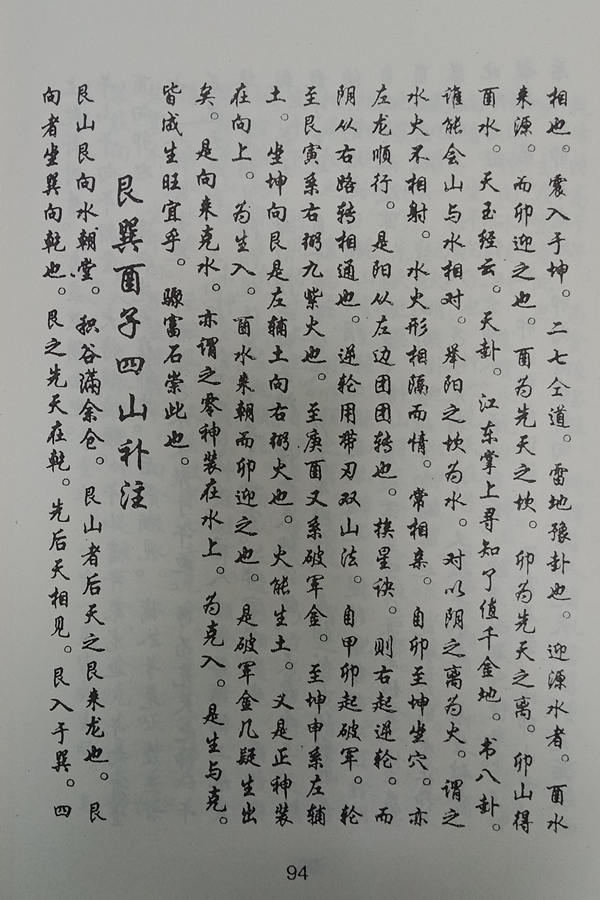 相也。震入于坤。二七仝道。雷地豫卦也。迎源水者。酉水
来源。而卯迎之也。酉为先天之坎。卯为先天之离。卯山得
酉水。天玉经云。天卦。江东掌上寻知了值千金地。书八卦。
谁能会山与水相对。举阳之坎为水。对以阴之离为火。谓之
水火不相射。水火形相隔而情。常相亲。自卯至坤坐穴。亦
左龙顺行。是阳从左边团团转也。挨星诀。则右起逆轮。而
阴从右路转相通也。逆轮用带刃双山法。自甲卯起破军。轮
至艮寅系右弼九紫火也。至庚酉又系破军金。至坤申系左辅
土。坐坤向艮是左辅土向右弼火也。火能生土。又是正神装
在向上。为生入。酉水来朝而卯迎之也。是破军金几疑生出
矣。是向来克水。亦谓之零神装在水上。为克入。是生与克。
皆成生旺宜乎。骤富石崇此也。
艮巽酉子四山补注
艮山艮向水朝堂。积谷满余仓。艮山者后天之艮来龙也。艮
向者坐巽向乾也。艮之先天在乾。先后天相见。艮入于巽。四
94